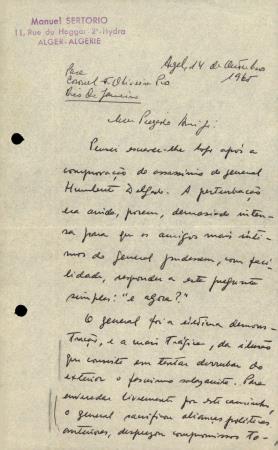 Manuel SERTORIO
11, Rue du Hoggar 2º-Hydra
ALGER-ALGERIE
Argel, 14 de Outubro
1965
Para
Coronel Oliveira Pio
Rio de Janeiro
Meu Prezado Amigo:
Pensei escrever-lhe logo após a
comprovação do assassínio do general
Humberto Delgado. A perturbação
era ainda, porém, demasiado inten-
sa para que os amigos mais ínti-
mos do General pudessem, com faci-
lidade, responder a esta pergunta
simples: "e agora?"
O general foi a última demons-
tração, e a mais trágica, da ilusão
que consiste em tentar derrubar do
exterior o fascismo salazarista. Para
enveredar livremente por este caminho,
o general sacrificou alianças políticas
anteriores, desprezou compromissos to-